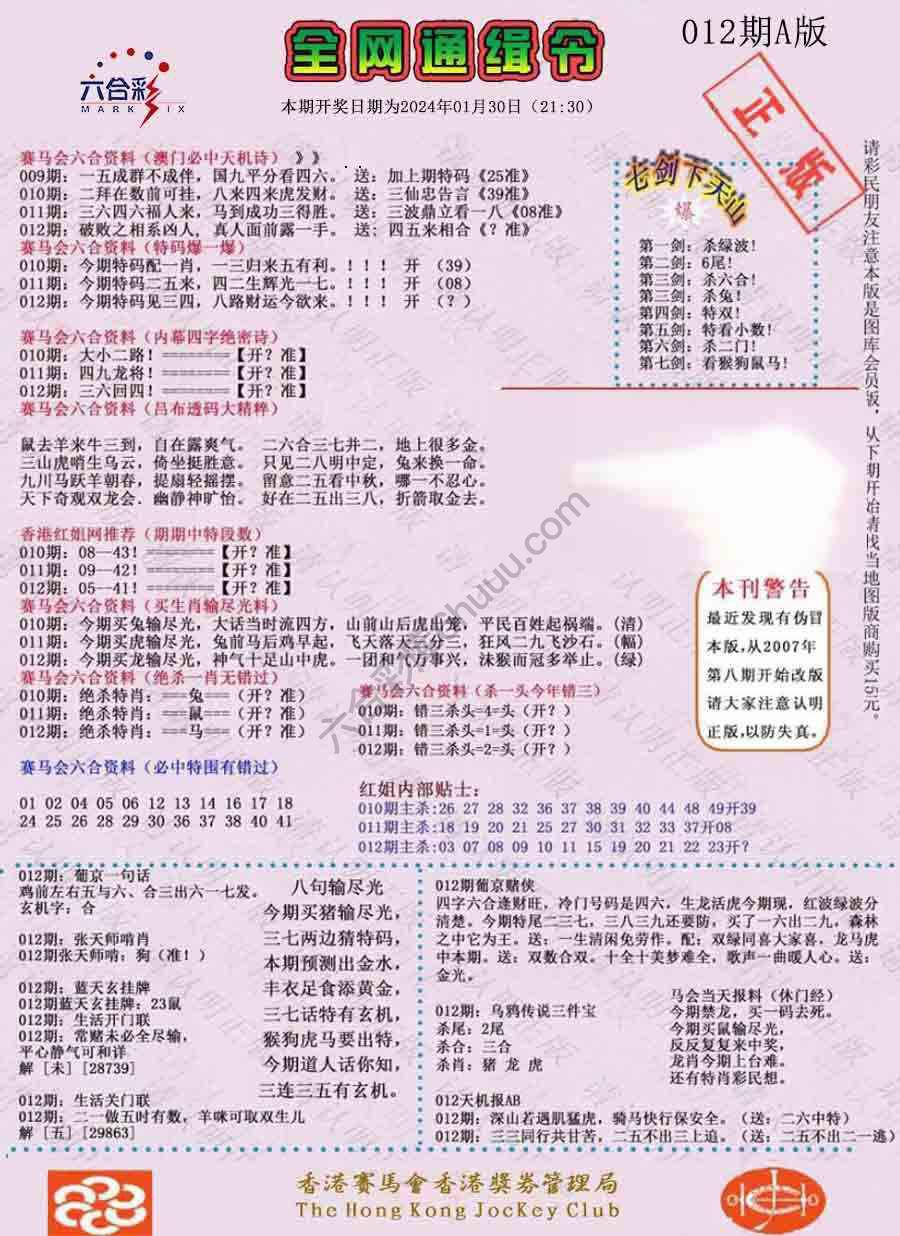 六合彩
MARK SIX
全网通缉令
012期A版
本期开奖日期为2024年01月30日（21:30）
正版
赛马会六合资料（澳门必中天机诗）》》
009期：一五成群不成伴，国九平分看四六。送：加上期特码《25准》
010期：二拜在数前可挂，八来四来虎发财。送：三仙忠告言《39准》
011期：三六四六福人来，马到成功三得胜。送：三波鼎立看一八《08准》
012期：破败之相系凶人，真人面前露一手。送：四五来相合《？准》
赛马会六合资料（特码爆一爆）
010期：今期特码配一肖，一三归来五有利。！！！ 开 （39）
011期：今期特码二五来，四二生辉光一七。！！！ 开 （08）
012期：今期特码见三四，八路财运今欲来。！！！ 开 （？）
赛马会六合资料（内幕四字绝密诗）
010期：大小二路！========【开？准】
011期：四九龙将！========【开？准】
012期：三六回四！========【开？准】
赛马会六合资料（吕布透码大精粹）
鼠去羊来牛三到，自在露爽气。 二六合三七井二，地上很多金。
三山虎哨生乌云，倚坐挺胜意。 只见二八明中定，兔来换一命。
九川马跃羊朝春，提扇轻摇摆。 留意二五看中秋，哪一不忍心。
天下奇观双龙会．幽静神旷怡。 好在二五出三八，折箭取金去。
七剑下天山
爆
第一剑：杀绿波！
第二剑：6尾！
第三剑：杀六合！
第三剑：杀兔！
第四剑：特双！
第五剑：特看小数！
第六剑：杀二门！
第七剑：看猴狗鼠马！
请彩民朋友注意本版是图库会员版，从下期开始请找当地图版商购买15元。
香港红姐网推荐（期期中特段数）
010期：08--43！========【开？准】
011期：09--42！========【开？准】
012期：05--41！========【开？准】
赛马会六合资料（买生肖输尽光料）
010期：今期买兔输尽光，大话当时流四方，山前山后虎出笼，平民百姓起祸端。（清）
011期：今期买虎输尽光，兔前马后鸡早起，飞天落天五分三，狂风二九飞沙石。（幅）
012期：今期买龙输尽光，神气十足山中虎。一团和气万事兴，沫猴而冠多举止。（绿）
赛马会六合资料（绝杀一肖无错过）
010期：绝杀特肖：===兔===（开？准）
011期：绝杀特肖：===鼠===（开？准）
012期：绝杀特肖：===马===（开？准）
赛马会六合资料（杀一头今年错三）
010期：错三杀头=4=头（开？）
011期：错三杀头=1=头（开？）
012期：错三杀头=2=头（开？）
本刊警告
最近发现有伪冒
本版，从2007年
第八期开始改版
请大家注意认明
正版，以防失真。
赛马会六合资料（必中特围有错过）
01 02 04 05 06 12 13 14 16 17 18
24 25 26 28 29 30 36 37 38 40 41
红姐内部贴士：
010期主杀：26 27 28 32 36 37 38 39 40 44 48 49开39
011期主杀：18 19 20 21 25 27 30 31 32 33 37开08
012期主杀：03 07 08 09 10 11 15 19 20 21 22 23开？
012期：葡京一句话
鸡前左右五与六、合三出六一七发。
玄机字：合
012期：张天师啃肖
012期张天师啃：狗（准！）
012期：蓝天玄挂牌
012期蓝天玄挂牌：23鼠
012期：生活开门联
012期：常赌未必全尽输，
平心静气可和详
解［未］［28739］
012期：生活关门联
012期：二一做五时有数，羊咪可取双生儿
解［五］［29863］
八句输尽光
今期买猪输尽光，
三七两边猜特码，
本期预测出金水，
丰衣足食添黄金，
三七话特有玄机，
猴狗虎马要出特，
今期道人话你知，
三连三五有玄机。
012期葡京赌侠
四字六合逢财旺，冷门号码是四六，生龙活虎今期现，红波绿波分
清楚。今期特尾二三七，三八三九还要防，买了一六出二九，森林
之中它为王。送：一生清闲免劳作。配：双绿同喜大家喜，龙马虎
中本期。送：双数合双。十全十美梦难全，歌声一曲暖人心。送：
金光。
012期：乌鸦传说三件宝
杀尾：2尾
杀合：三合
杀肖：猪 龙 虎
马会当天报料（休门经）
今期禁龙，买一码去死。
今期买鼠输尽光，
反反复复来中奖，
龙肖今期上台难。
还有特肖彩民想。
012天机报AB
012期：深山若遇肌猛虎，骑马快行保安全。（送：二六中特）
012期：三三同行共甘苦，二五不出三上追。（送：二五不出二一逃）
香港賽馬會香港獎券管理局
The Hong Kong JocKey Club